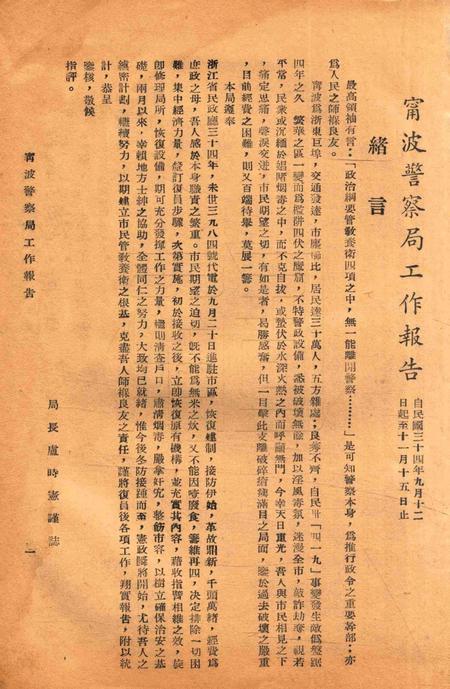 甯波警察局工作報告
自民國三十四年九月十二
日起至十一月十五日止
緒言
最高領袖有言：「政治綱要管敎養衛四項之中，無一能離開警察………」是可知警察本身，爲推行政令之重要幹部；亦
爲人民之師條良友。
甯波爲浙東巨埠，交通發達，市廛櫛比，居民達三十萬人，五方雜處；良莠不齊，自民卅「四一九」事變發生敵僞盤踞
四年之久　繁華之區一變而爲陰阱四伏之魔窟，不特警政設備，悉被破壞無餘，加以淫風毒氛，迷漫全市，敲詐劫奪，視若
平常，民衆或沉緬於娼賭烟毒之中，而不克自拔，或蟄伏於水深火熱之內而呼籲無門，今幸天日重光，吾人與市民相見之下
，痛定思痛，聲淚交迸，市民期望之切，有如是者，曷勝感奮，但一目擊此支離破碎瘡痍滿目之局面，鉴於過去破壞之嚴重
，目前經費之困難，則又百端待舉，莫展一籌。
本局遵奉
浙江省民政廳三十四年，未世三九八四號代電於九月二十日進駐市區，恢復建制，接防伊始，革故鼎新，千頭萬緒，經費爲
庶政之母，吾人感於本身職責之繁重。市民期望之迫切，旣不能爲無米之炊，又不能因噎廢食，籌維再四，决定排除一切困
難，集中經濟力量，釐訂復員步驟，次第實施，初於接收之後，立卽恢復原有機構，並充實其內容，藉收指臂相維之效，旋
卽修理局所，恢復設備，期可充分發揮工作之力量，繼則清查戶口，肅清烟毒，嚴拿奸宄，整飭市容，以樹立確保治安之基
礎，兩月以來，幸賴地方士紳之協助，全體同仁之努力，大致均已就緒，惟今後冬防接踵而至，憲政瞬將開始，尤待吾人之
縝密計劃，繼續努力，以期建立市民管敎養衛之根基，克盡吾人師條良友之責任，謹將復員後各項工作，翔實報告，附以統
計，恭呈
鑒核，敬候
指評。
局長盧時憲謹誌
甯波警察局工作報告
一